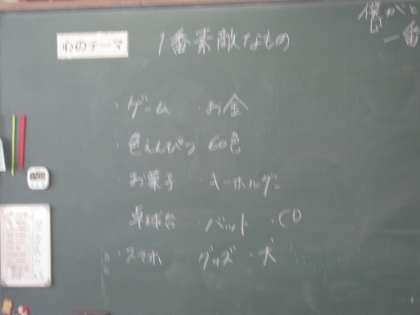 心のテーマ 1番素敵なもの
・ゲーム ・お金
・色えんぴつ 60色
お菓子 キーホルダー
卓球台 バット ・CD
・スマホ グッズ ・犬
一番